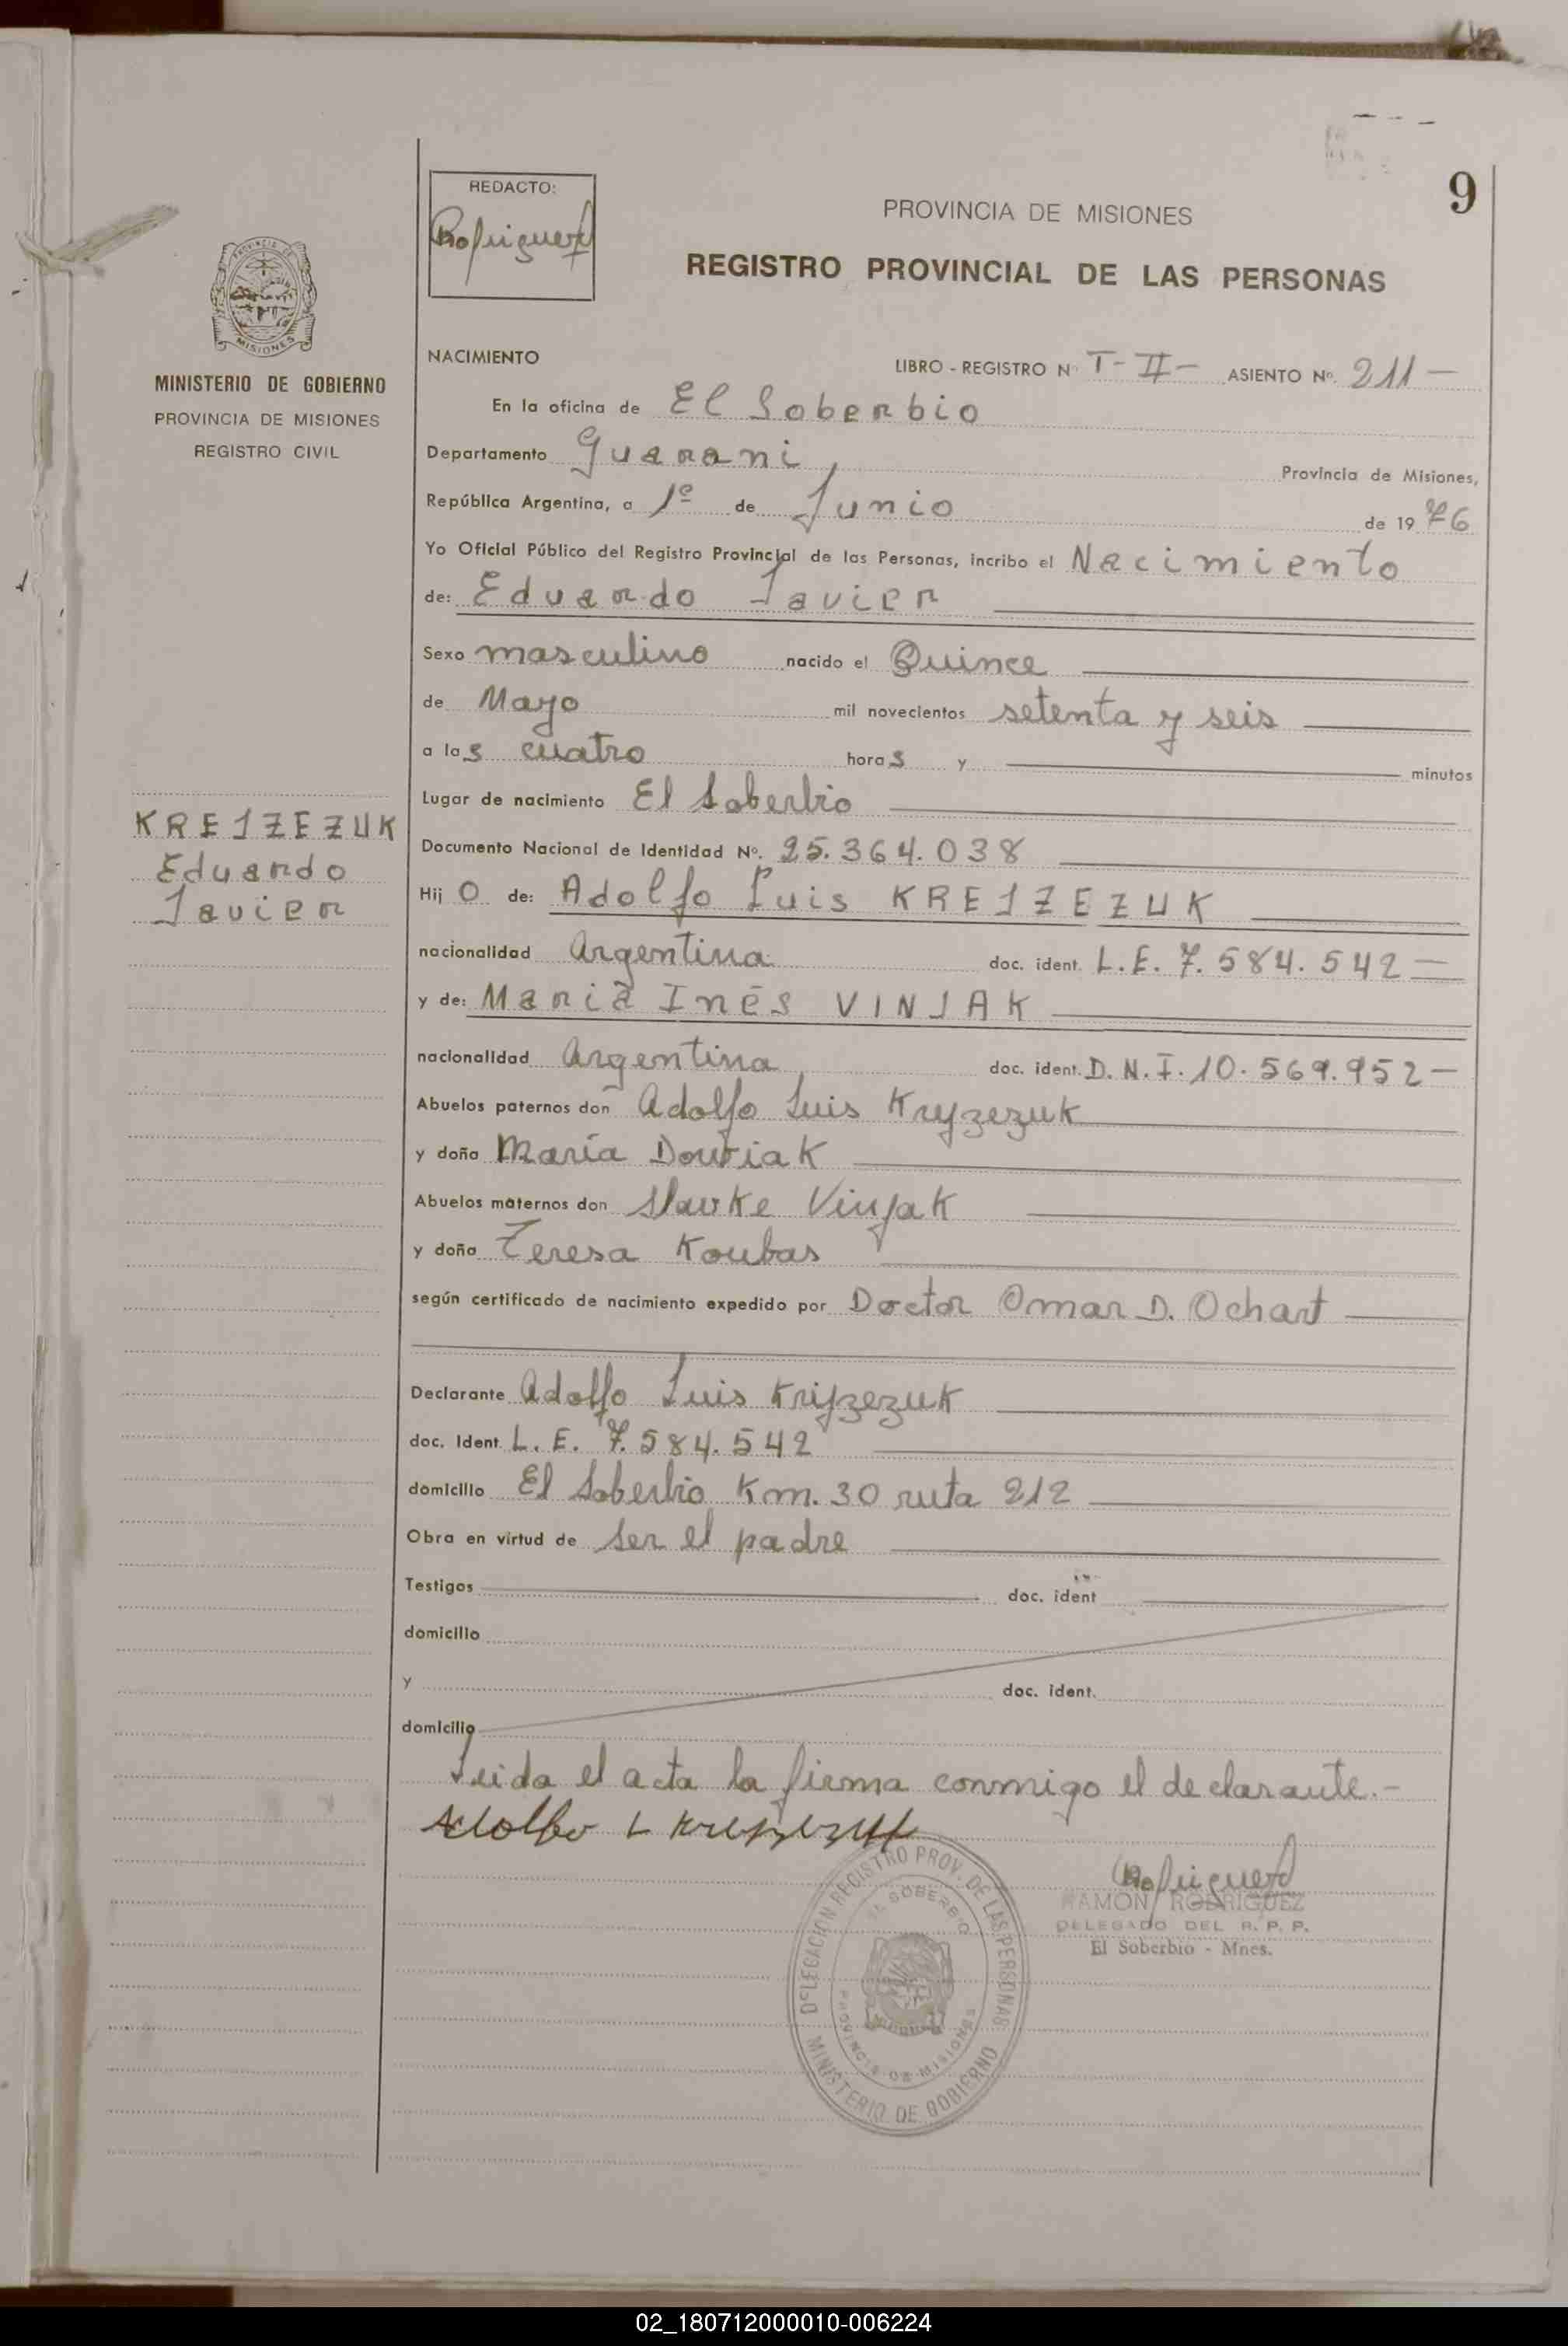 9
REDACTO:
Rodriguez
PROVINCIA DE MISIONES
REGISTRO PROVINCIAL DE LAS PERSONAS
MISIONES
MINISTERIO DE GOBIERNO
PROVINCIA DE MISIONES
REGISTRO CIVIL
KREJZEZUK
Eduardo
Javier
NACIMIENTO
LIBRO - REGISTRO Nº T-II- ASIENTO Nº. 211-
En la oficina de El Soberbio
Departamento Guarani, Provincia de Misiones,
República Argentina, a 1º de Junio de 1976
Yo Oficial Público del Registro Provincial de las Personas, incribo el Nacimiento
de: Eduardo Javier
Sexo masculino nacido el Quince
de Mayo mil novecientos setenta y seis
a las cuatro horas y minutos
Lugar de nacimiento El Soberbio
Documento Nacional de Identidad Nº. 25.364.038
Hijo de: Adolfo Luis KREJZEZUK
nacionalidad Argentina doc. ident. L.E. 7.584.542
y de: María Inés VINJAK
nacionalidad Argentina doc. ident. D.N.I. 10.569.952-
Abuelos paternos don Adolfo Luis Kryzezuk
y doña María Dowiak
Abuelos maternos don Slavke Vinjak
y doña Teresa Koubas
según certificado de nacimiento expedido por Doctor Omar D. Ochart
Declarante Adolfo Luis Krijzezuk
doc. Ident. L.E. 7.584.542
domicilio El Soberbio Km. 30 ruta 212
Obra en virtud de ser el padre
Testigos doc. ident
domicilio
y doc. ident.
domicilio
Leida el acta la firma conmigo el declarante.-
Adolfo L
Rodriguez
RAMON RODRIGUEZ
DELEGADO DEL R. P. P.
El Soberbio - Mnes.
DELEGACION REGISTRO PROV. DE LAS PERSONAS
EL SOBERBIO
PROVINCIA DE MISIONES
MINISTERIO DE GOBIERNO
02_180712000010-006224